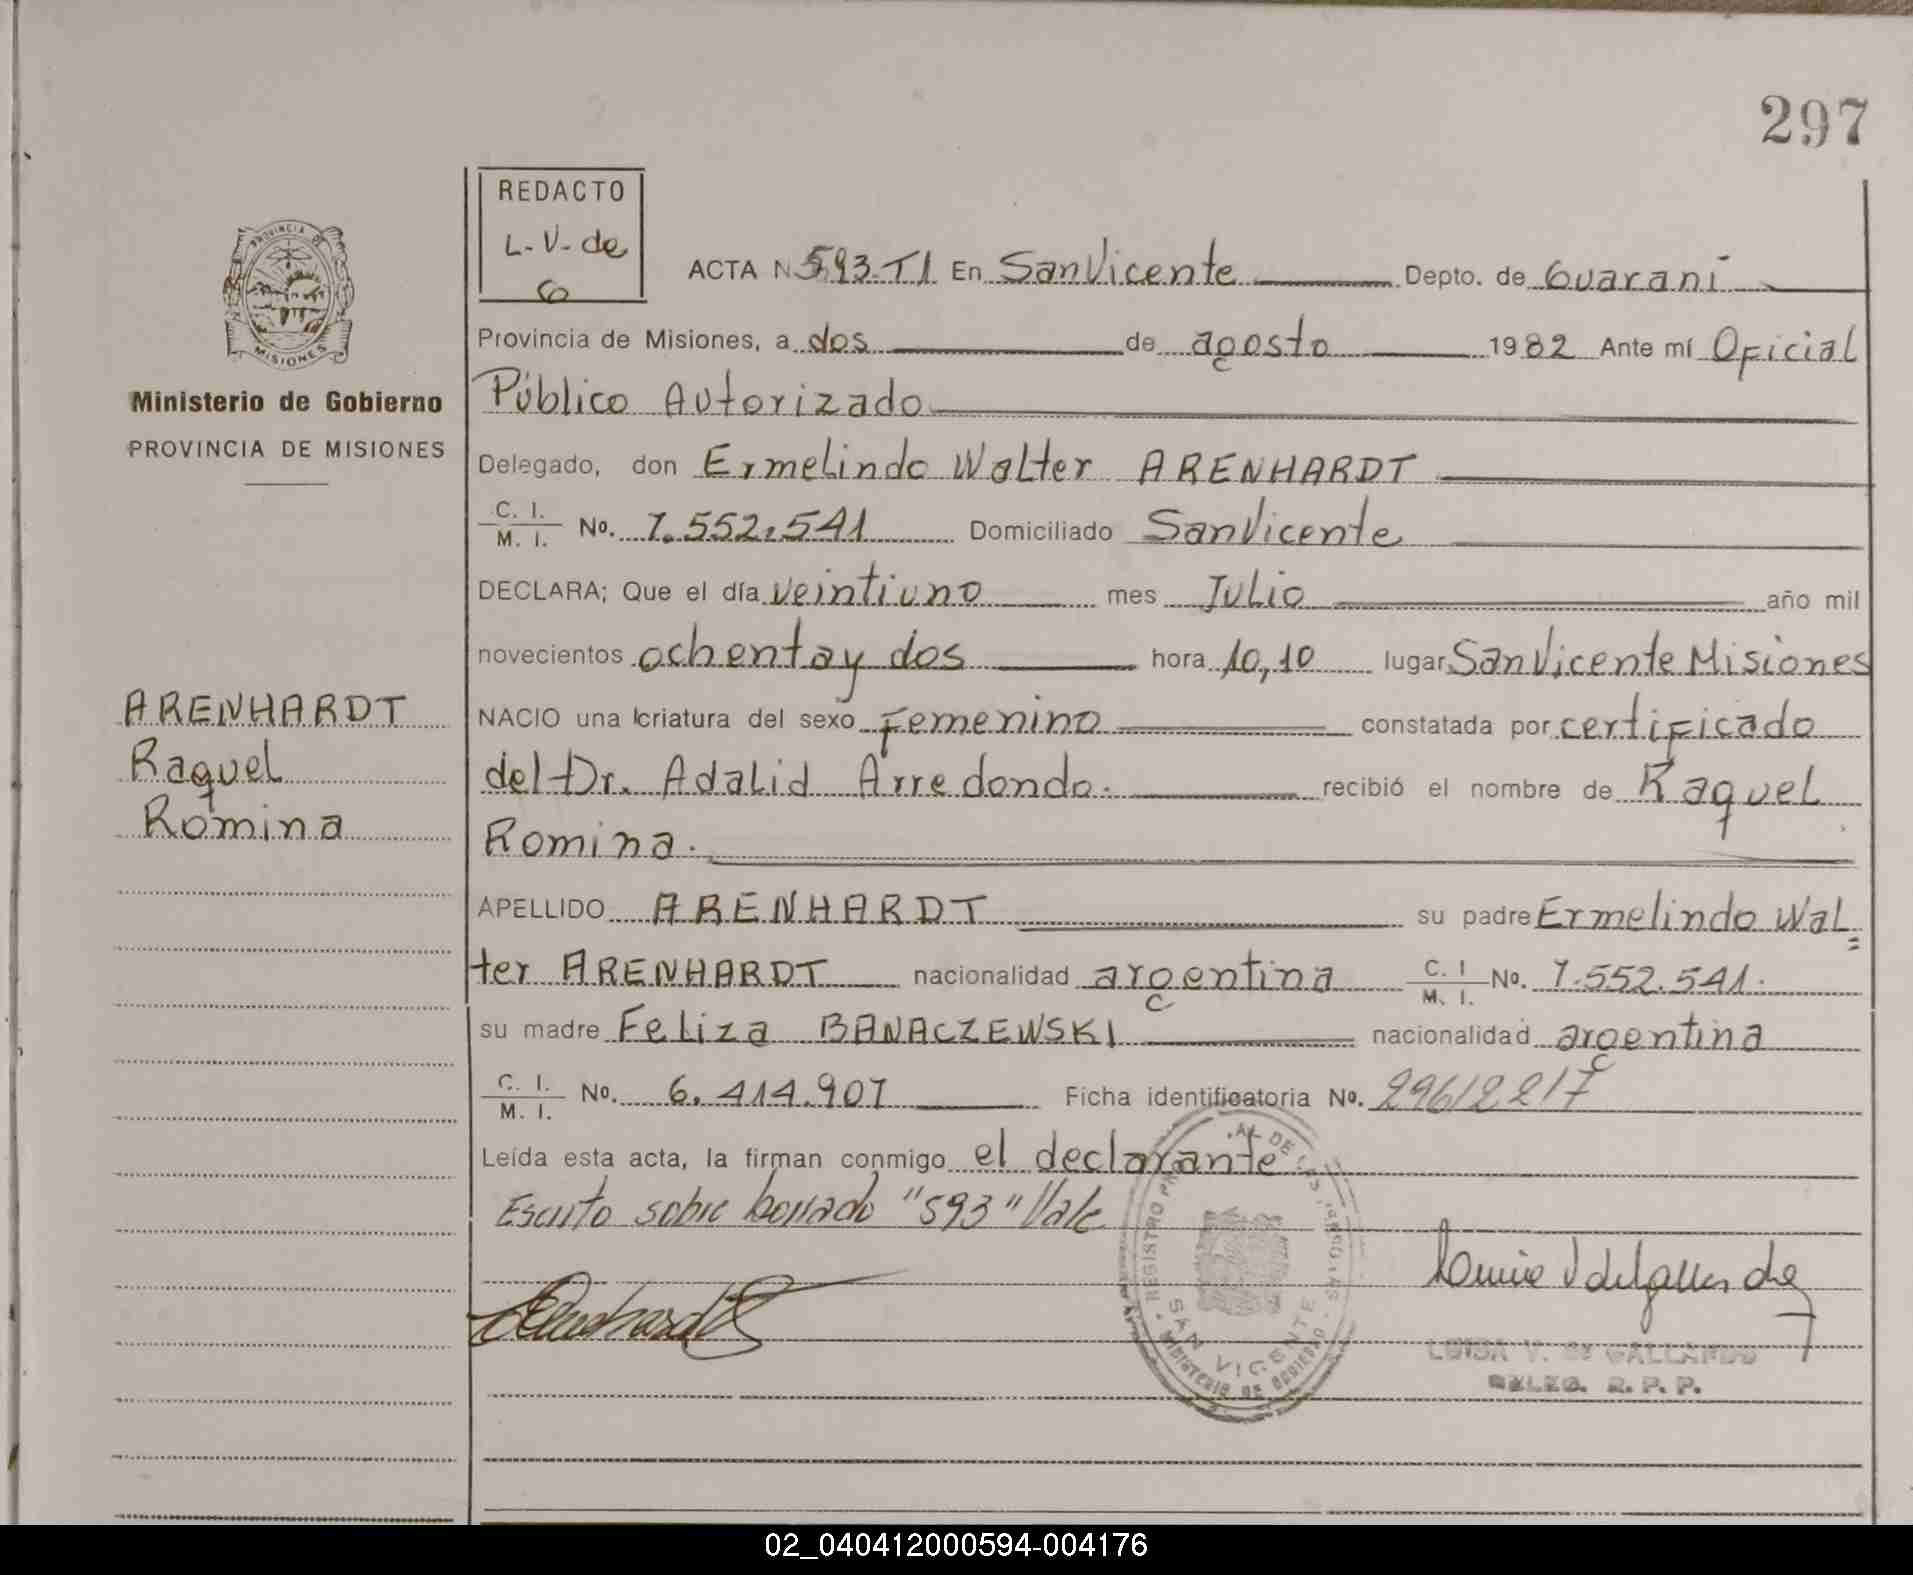 297
REDACTO
L-V-de
G
ACTA N 593-T1 En San Vicente Depto. de Guaraní
Provincia de Misiones, a dos de agosto 1982 Ante mí Oficial
Público Autorizado
Delegado, don Ermelindo Walter ARENHARDT
C. I.
M. I. No. 7.552.541 Domiciliado San Vicente
DECLARA; Que el día veintiuno mes Julio año mil
novecientos ochenta y dos hora 10,10 lugar San Vicente Misiones
NACIO una criatura del sexo Femenino constatada por certificado
del Dr. Adalid Arredondo. recibió el nombre de Raquel
Romina.
APELLIDO ARENHARDT su padre Ermelindo Wal=
ter ARENHARDT nacionalidad argentina C. I
M. I. No. 7.552.541.
su madre Feliza BANACZEWSKI nacionalidad argentina
C. I.
M. I. No. 6.414.907 Ficha identificatoria No. 29612217
Leída esta acta, la firman conmigo el declarante
Escrito sobre borrado "593" Vale
PROVINCIA DE
MISIONES
Ministerio de Gobierno
PROVINCIA DE MISIONES
ARENHARDT
Raquel
Romina
REGISTRO AL DE LAS PERSONAS
SAN VICENTE
MINISTERIO DE GOBIERNO
LUISA V. DE GALLARDO
DELEG. R. P. P.
02_040412000594-004176